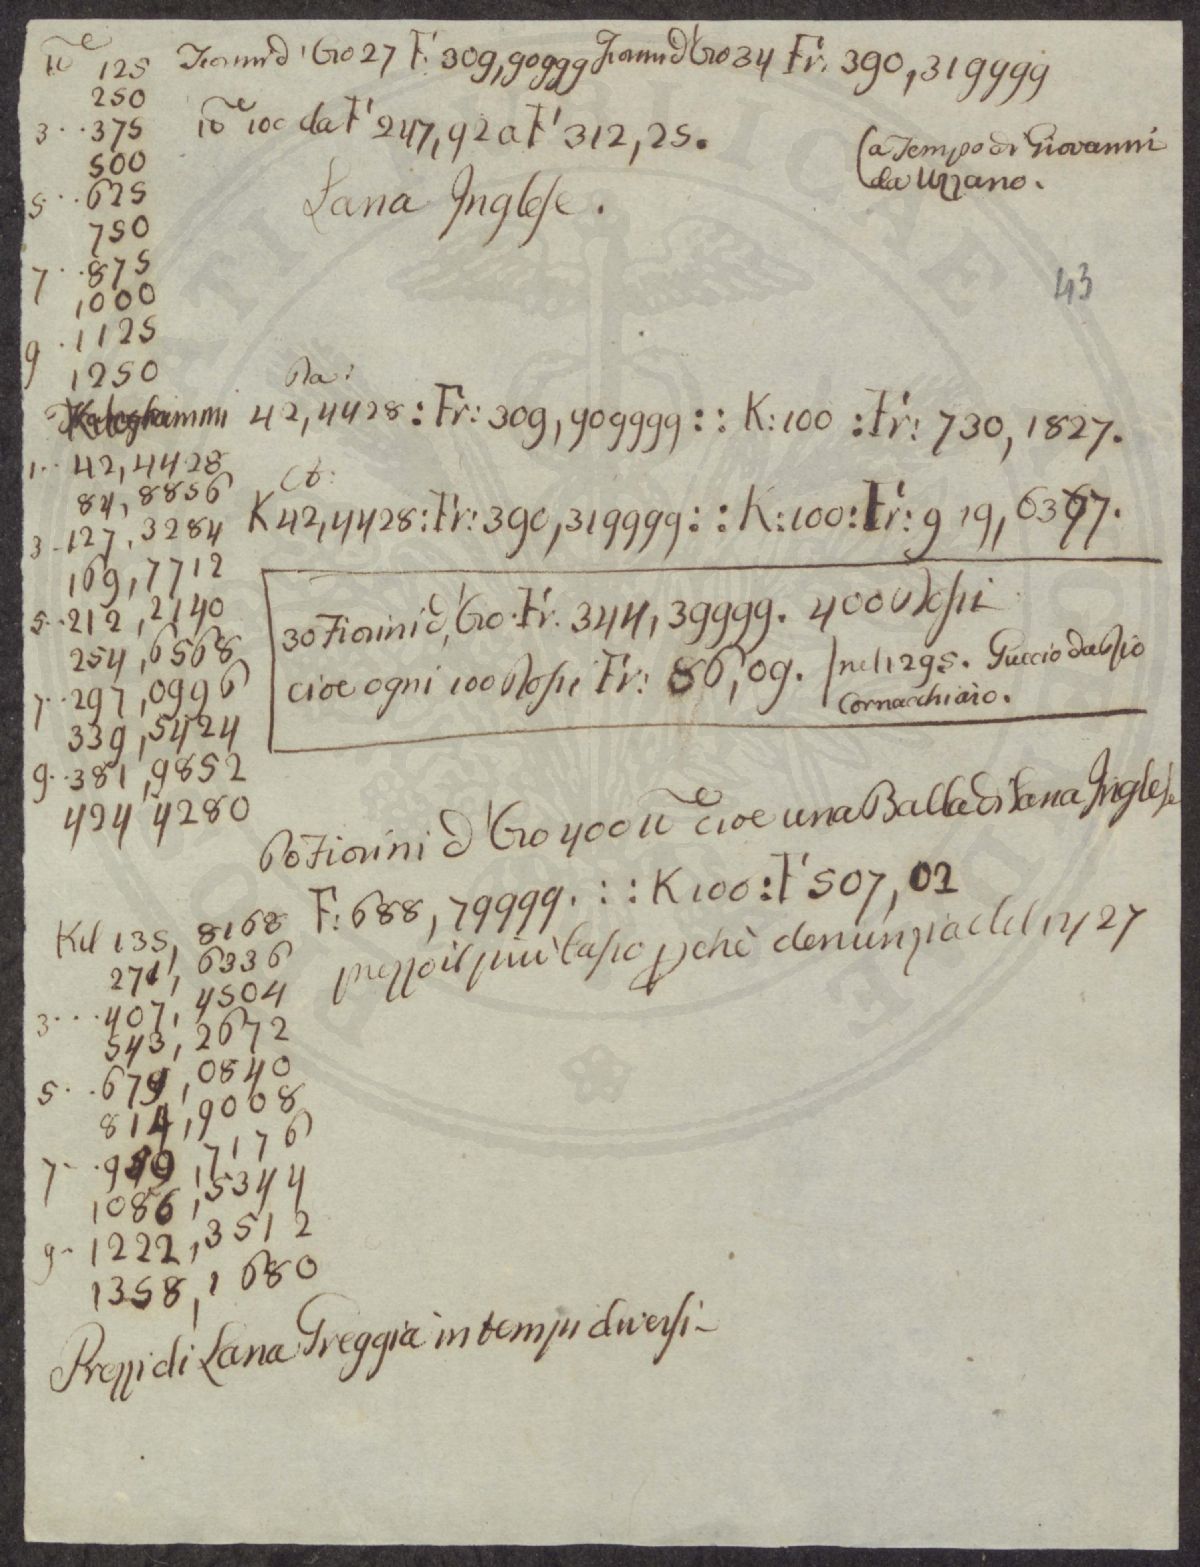 125 Fiorini d'Oro 27 F: 309,90999 Fiorini d'Oro 34 Fr: 390,319999
250
3 .. 375 100 da F 247,92 a F 312,25.
(a Tempo di Giovanni
da Uzzano.
500
5 .. 625
Lana Inglese.
750
7 .. 875
43
1000
9 . 1125
1250
Pa:
42,4428 : Fr: 309,909999 :: K: 100 : Fr: 730,1827.
1 .. 42,4428
84,8856
Ct:
3 - 127,3284
K 42,4428 : Fr: 390,319999 :: K: 100 : Fr: 919,6367.
169,7712
5 .. 212,2140
254,6568
7 .. 297,0996
339,5424
9 .. 381,9852
424 4280
30 Fiorini d'Oro. Fr. 344,39999. 400
cioe ogni 100 Fr: 86,09.
nel 1295. Guccio da
Cornacchiaio.
60 Fiorini d'Oro 400 cioe una Balla di Lana Inglese
F: 688,79999. :: K 100 : F 507,02
prezzo il piu basso pche denunzia del 1427
Kil 135,8168
271,6336
3 ... 407,4504
543,2672
5 .. 679,0840
814,9008
7 - . 950,7176
1086,5344
9 - 1222,3512
1358,1680
Prezzi di Lana Greggia in tempi diversi -